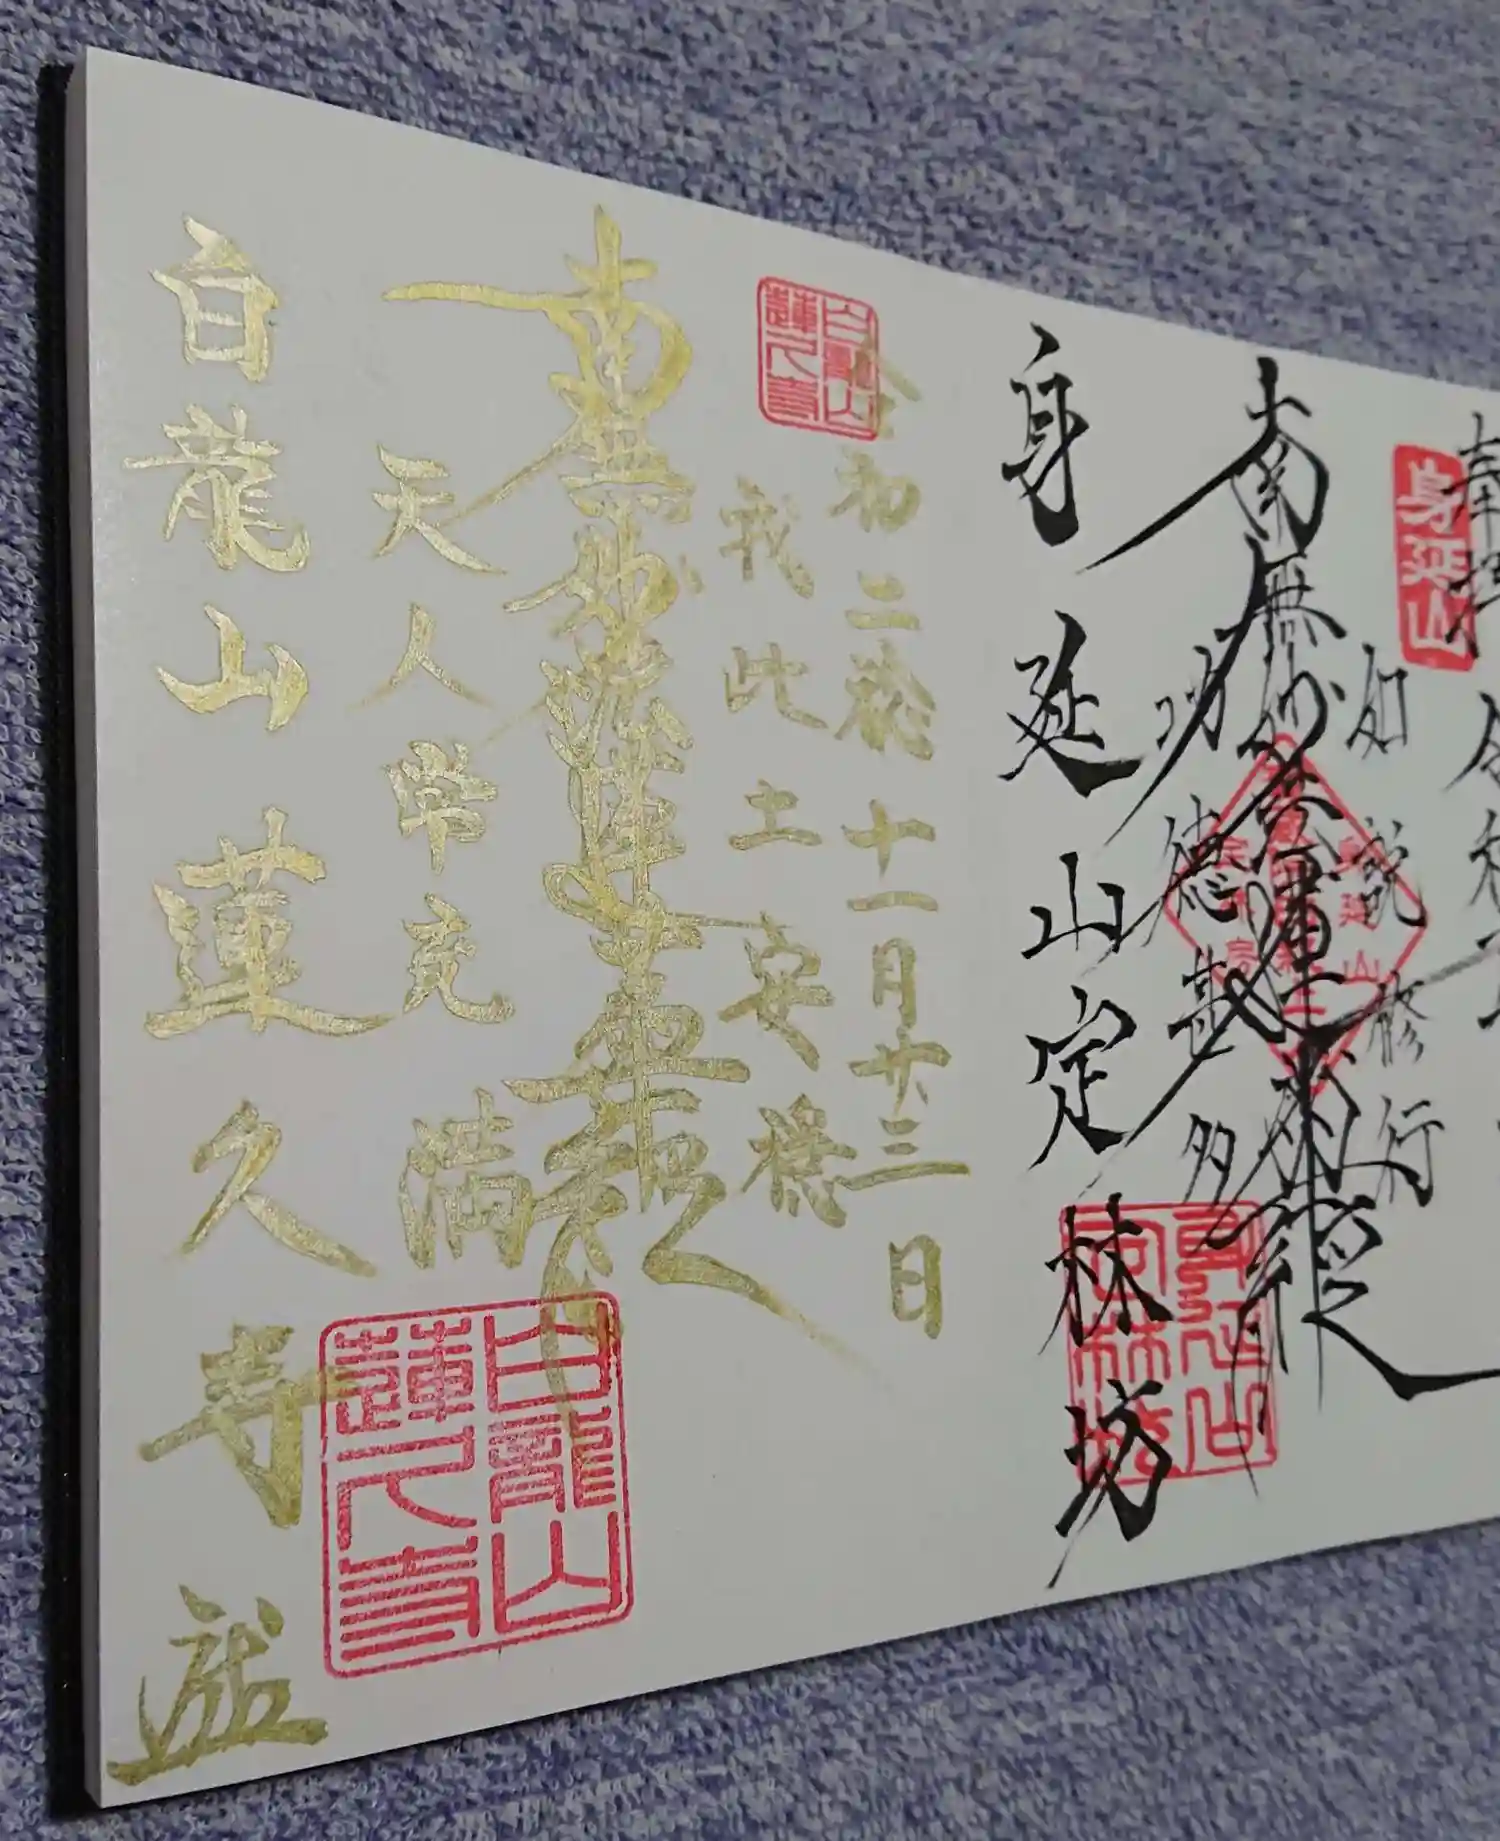 如説修行
南無妙法蓮華経
功徳甚多
身延山定林坊
身延山
令和二稔十一月廿三日
我此土安穏
南無妙法蓮華経
天人常充満
白龍山蓮久寺
白龍山
蓮久寺
白龍山
蓮久寺